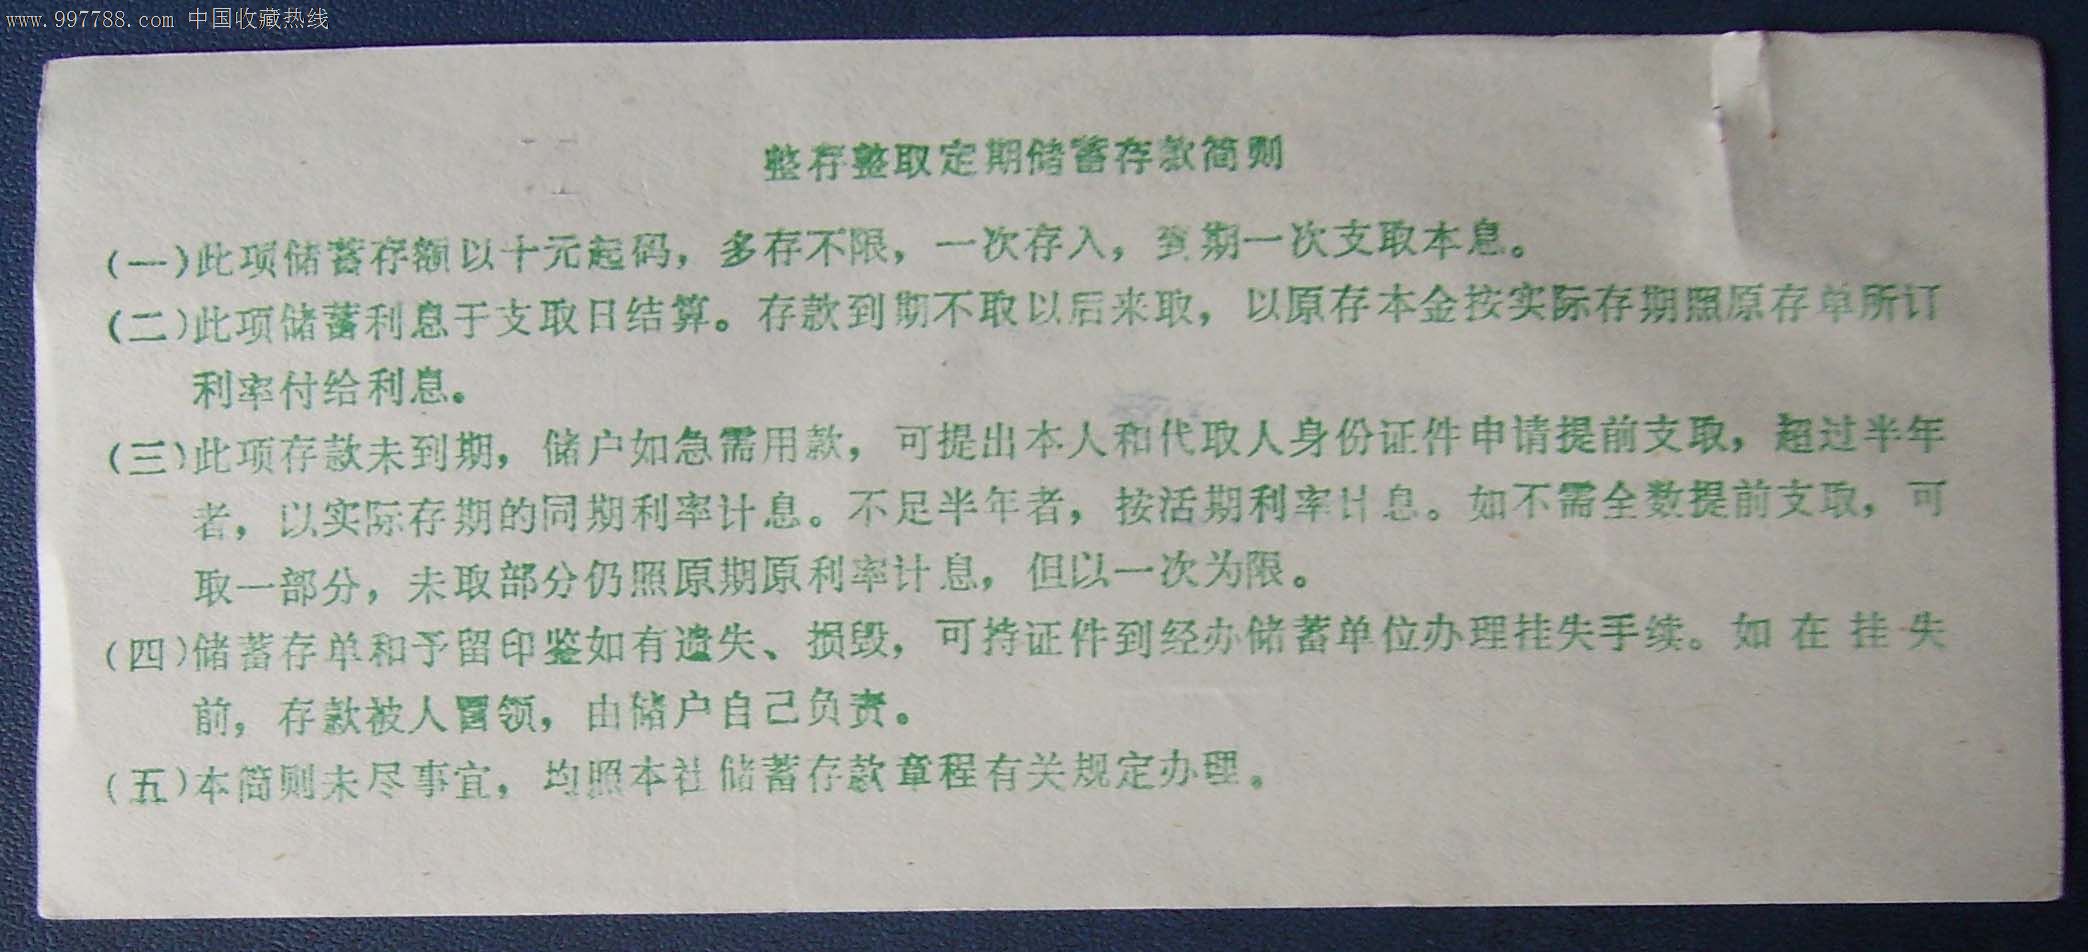 www.997788.com 中国收藏热线
整存整取定期储蓄存款简则
(一)此项储蓄存额以十元起码，多存不限，一次存入，到期一次支取本息。
(二)此项储蓄利息于支取日结算。存款到期不取以后来取，以原存本金按实际存期照原存单所订
利率付给利息。
(三)此项存款未到期，储户如急需用款，可提出本人和代取人身份证件申请提前支取，超过半年
者，以实际存期的同期利率计息。不足半年者，按活期利率计息。如不需全数提前支取，可
取一部分，未取部分仍照原期原利率计息，但以一次为限。
(四)储蓄存单和予留印鉴如有遗失、损毁，可持证件到经办储蓄单位办理挂失手续。如在挂失
前，存款被人冒领，由储户自己负责。
(五)本简则未尽事宜，均照本社储蓄存款章程有关规定办理。